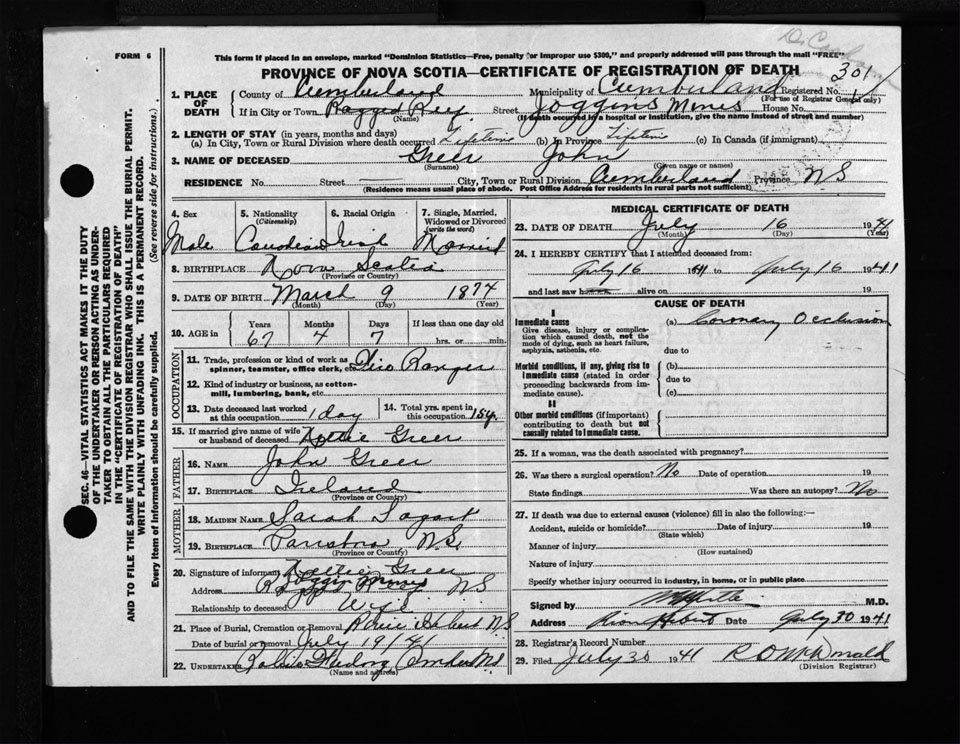 FORM 6
This form if placed in an envelope, marked "Dominion Statistics—Free, penalty for improper use $300," and properly addressed will pass through the mail "FREE"
PROVINCE OF NOVA SCOTIA—CERTIFICATE OF REGISTRATION OF DEATH 301
1. PLACE OF DEATH County of Cumberland Municipality of Cumberland Registered No.
(For use of Registrar General only)
If in City or Town Ragged Reef Street Joggins Mines House No.
(Name) (If death occurred in a hospital or institution, give the name instead of street and number)
2. LENGTH OF STAY (in years, months and days)
(a) In City, Town or Rural Division where death occurred Lifetime (b) In Province Lifetime (c) In Canada (if immigrant)
3. NAME OF DECEASED Greer John
(Surname) (Given name or names)
RESIDENCE No. Street City, Town or Rural Division Cumberland Province N S
(Residence means usual place of abode. Post Office Address for residents in rural parts not sufficient)
4. Sex 5. Nationality 6. Racial Origin 7. Single, Married,
(Citizenship) Widowed or Divorced
(write the word)
Male Canadian Irish Married
8. BIRTHPLACE Nova Scotia
(Province or Country)
9. DATE OF BIRTH March 9 1874
(Month) (Day) (Year)
10. AGE in Years Months Days If less than one day old
67 4 7 hrs. or min.
OCCUPATION
11. Trade, profession or kind of work as Ranger
spinner, teamster, office clerk, etc.
12. Kind of industry or business, as cotton-
mill, lumbering, bank, etc.
13. Date deceased last worked at this occupation 1 day 14. Total yrs. spent in this occupation 15 y.
15. If married give name of wife or husband of deceased Greer
FATHER
16. NAME John Greer
17. BIRTHPLACE Ireland
(Province or Country)
MOTHER
18. MAIDEN NAME Sarah
19. BIRTHPLACE N.S.
(Province or Country)
20. Signature of informant Greer
Address Joggin Mines NS
Relationship to deceased Wife
21. Place of Burial, Cremation or Removal River Hebert N S
Date of burial or removal July 19/41
22. UNDERTAKER Amherst N S
(Name and address)
MEDICAL CERTIFICATE OF DEATH
23. DATE OF DEATH July 16 1941
(Month) (Day) (Year)
24. I HEREBY CERTIFY that I attended deceased from:
July 16 1941 to July 16 1941
and last saw h alive on 19
CAUSE OF DEATH
I
Immediate cause (a) Coronary Occlusion
Give disease, injury or complication which caused death, not the mode of dying, such as heart failure, asphyxia, asthenia, etc.
due to
Morbid conditions, if any, giving rise to immediate cause (stated in order proceeding backwards from immediate cause).
(b)
due to
(c)
II
Other morbid conditions (if important) contributing to death but not causally related to immediate cause.
25. If a woman, was the death associated with pregnancy?
26. Was there a surgical operation? No Date of operation 19
State findings Was there an autopsy? No
27. If death was due to external causes (violence) fill in also the following:—
Accident, suicide or homicide? Date of injury 19
(State which)
Manner of injury
(How sustained)
Nature of injury
Specify whether injury occurred in industry, in home, or in public place
Signed by M.D.
Address River Hebert Date July 30 1941
28. Registrar's Record Number
29. Filed July 30 1941
(Division Registrar)
SEC. 46—VITAL STATISTICS ACT MAKES IT THE DUTY
OF THE UNDERTAKER OR PERSON ACTING AS UNDER-
TAKER TO OBTAIN ALL THE PARTICULARS REQUIRED
IN THE "CERTIFICATE OF REGISTRATION OF DEATH"
AND TO FILE THE SAME WITH THE DIVISION REGISTRAR WHO SHALL ISSUE THE BURIAL PERMIT.
WRITE PLAINLY WITH UNFADING INK. THIS IS A PERMANENT RECORD.
Every item of information should be carefully supplied. (See reverse side for instructions.)